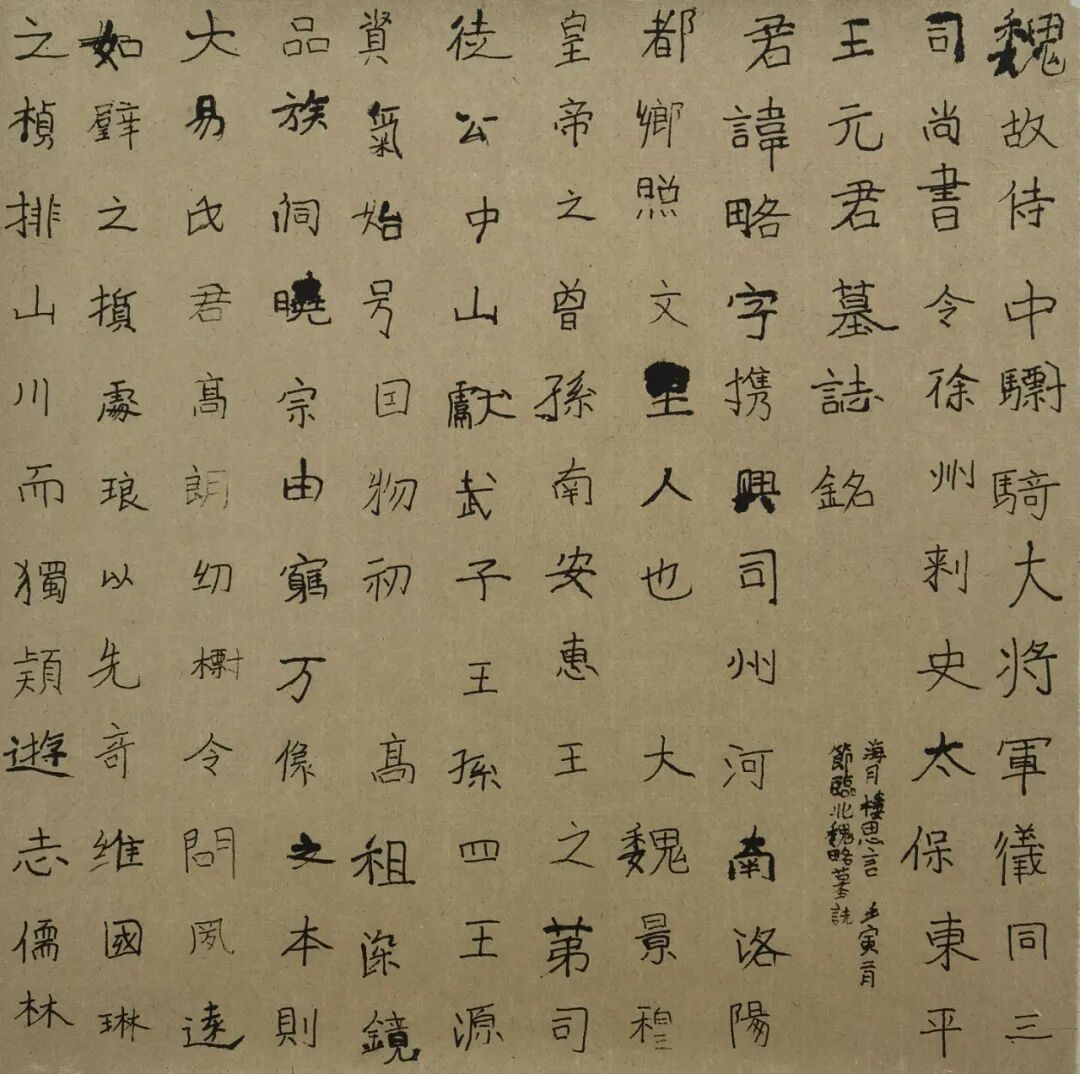 魏故侍中驃騎大將軍儀同三
司尚書令徐州刺史太保東平
王元君墓誌銘
君諱略字携興司州河南洛陽
都鄉照文里人也大魏景穆
皇帝之曾孫南安惠王之第司
徒公中山獻武子王孫四王源
資氣始号因物初高祖深鏡
品族洞曉宗由窮万像之本則
大易氏君高朗幼標令問夙遠
如璧之損處琅以先奇維國琳
之楨排山川而獨穎遊志儒林
海月樓思言 壬寅二月
節臨北魏略墓誌